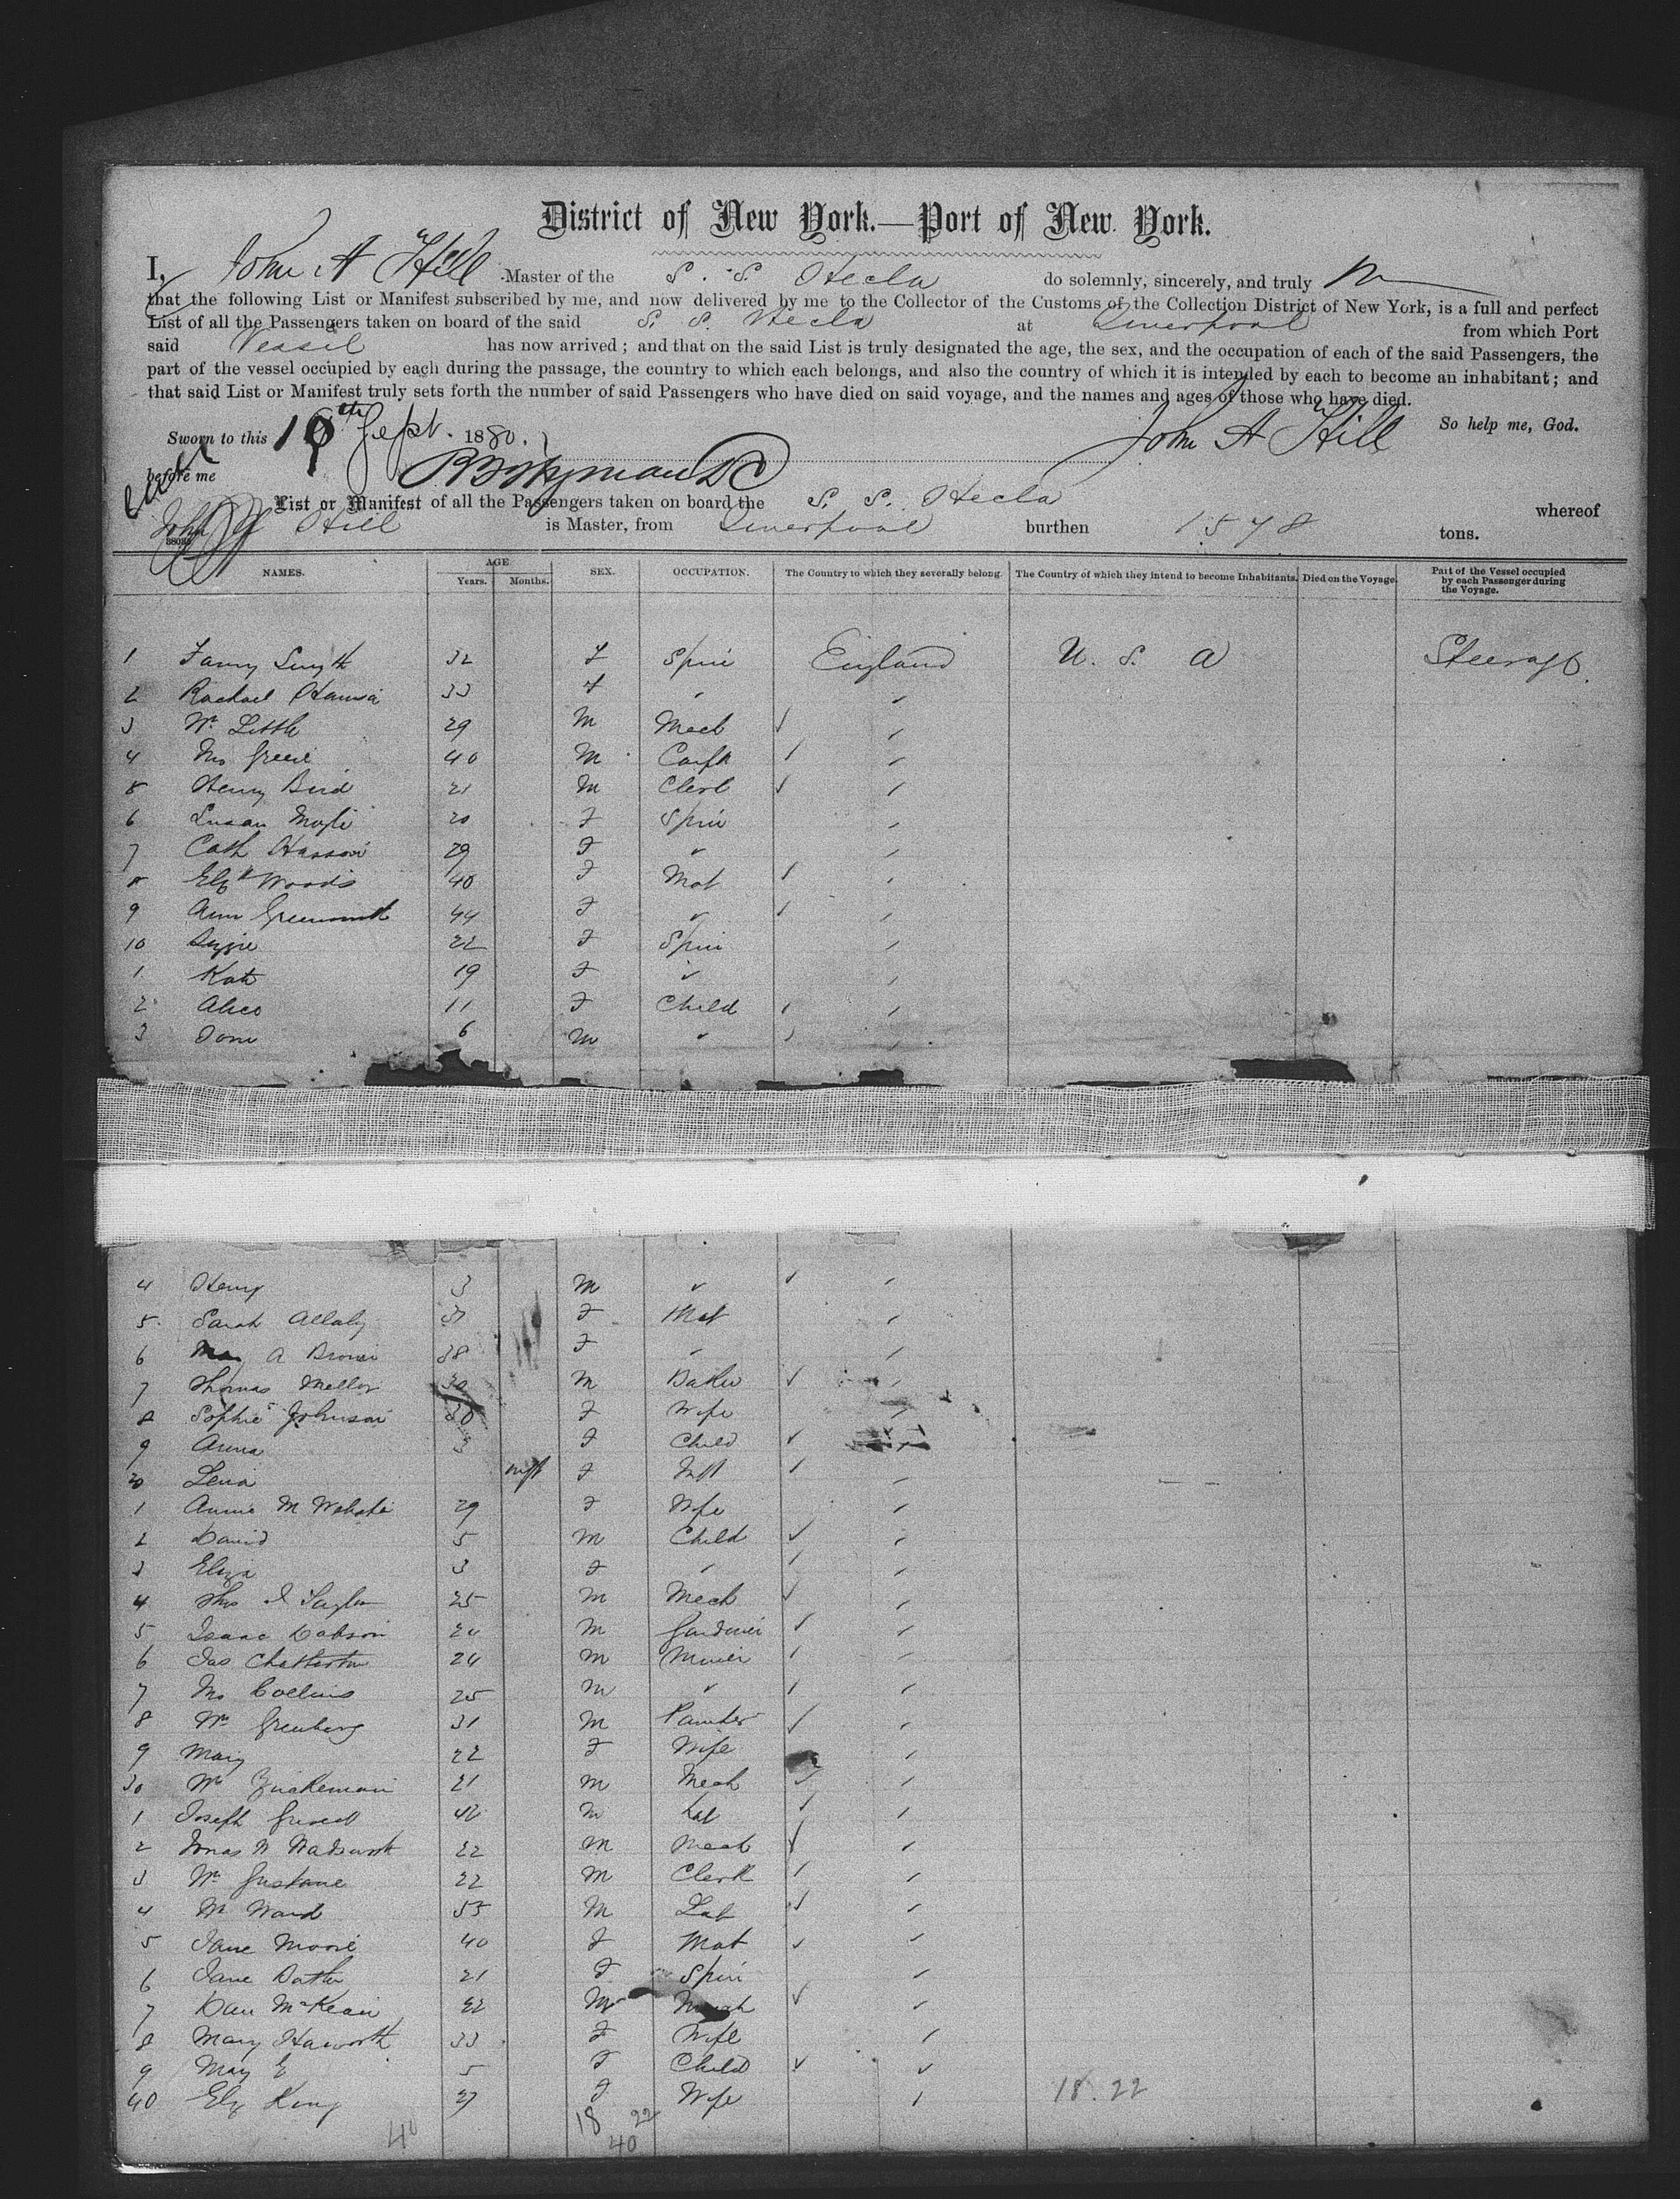 District of New York.—Port of New York.
I, John A Hill Master of the S. S. Hecla do solemnly, sincerely, and truly
that the following List or Manifest subscribed by me, and now delivered by me to the Collector of the Customs of the Collection District of New York, is a full and perfect
List of all the Passengers taken on board of the said S. S. Hecla at Liverpool from which Port
said Vessel has now arrived; and that on the said List is truly designated the age, the sex, and the occupation of each of the said Passengers, the
part of the vessel occupied by each during the passage, the country to which each belongs, and also the country of which it is intended by each to become an inhabitant; and
that said List or Manifest truly sets forth the number of said Passengers who have died on said voyage, and the names and ages of those who have died.
Sworn to this Sept. 1880. John A Hill So help me, God.
before me
List or Manifest of all the Passengers taken on board the S. S. Hecla whereof
John A Hill is Master, from Liverpool burthen 1578 tons.
NAMES. AGE Years. Months. SEX. OCCUPATION. The Country to which they severally belong. The Country of which they intend to become Inhabitants. Died on the Voyage. Part of the Vessel occupied by each Passenger during the Voyage.
1 Fanny Smyth 32 F Spin England U. S. A Steerage
2 Rachael 33 F "
3 Wm Little 29 M Mech
4 Green 40 M Carp
5 Henry Bird 21 M Clerk
6 Susan 20 F Spin
7 Cath 29 F "
8 Elzth Woods 40 F Mat
9 Ann Greenwood 44 F "
10 Lizzie 22 F Spin
1 Kate 19 F "
2 Alice 11 F Child
3 Tom 6 M "
4 Henry 3 M "
5 Sarah 37 F Mat
6 A Brown 38 F "
7 Thomas Mellor 30 M Baker
8 Sophie Johnson 30 F Wife
9 Anna 3 F Child
20 Lena F Inft
1 Annie M Webster 29 F Wife
2 David 5 M Child
3 Eliza 3 F "
4 Thos J Taylor 25 M Mech
5 Isaac Dobson 24 M Gardener
6 Jas Chatterton 24 M Miner
7 Collins 25 M "
8 Wm Greenberg 31 M Painter
9 Mary 22 F Wife
30 Wm Zuckerman 21 M Mech
1 Joseph 42 M Lab
2 Jonas W Wadsworth 22 M Mech
3 Wm 22 M Clerk
4 Ward 55 M Lab
5 Jane Moore 40 F Mat
6 Jane 21 F Spin
7 Dan McKean 22 M
8 Mary Haworth 33 F Wife
9 Mary E 5 F Child
40 Elz King 27 F Wife 18. 22
40 18 22
40